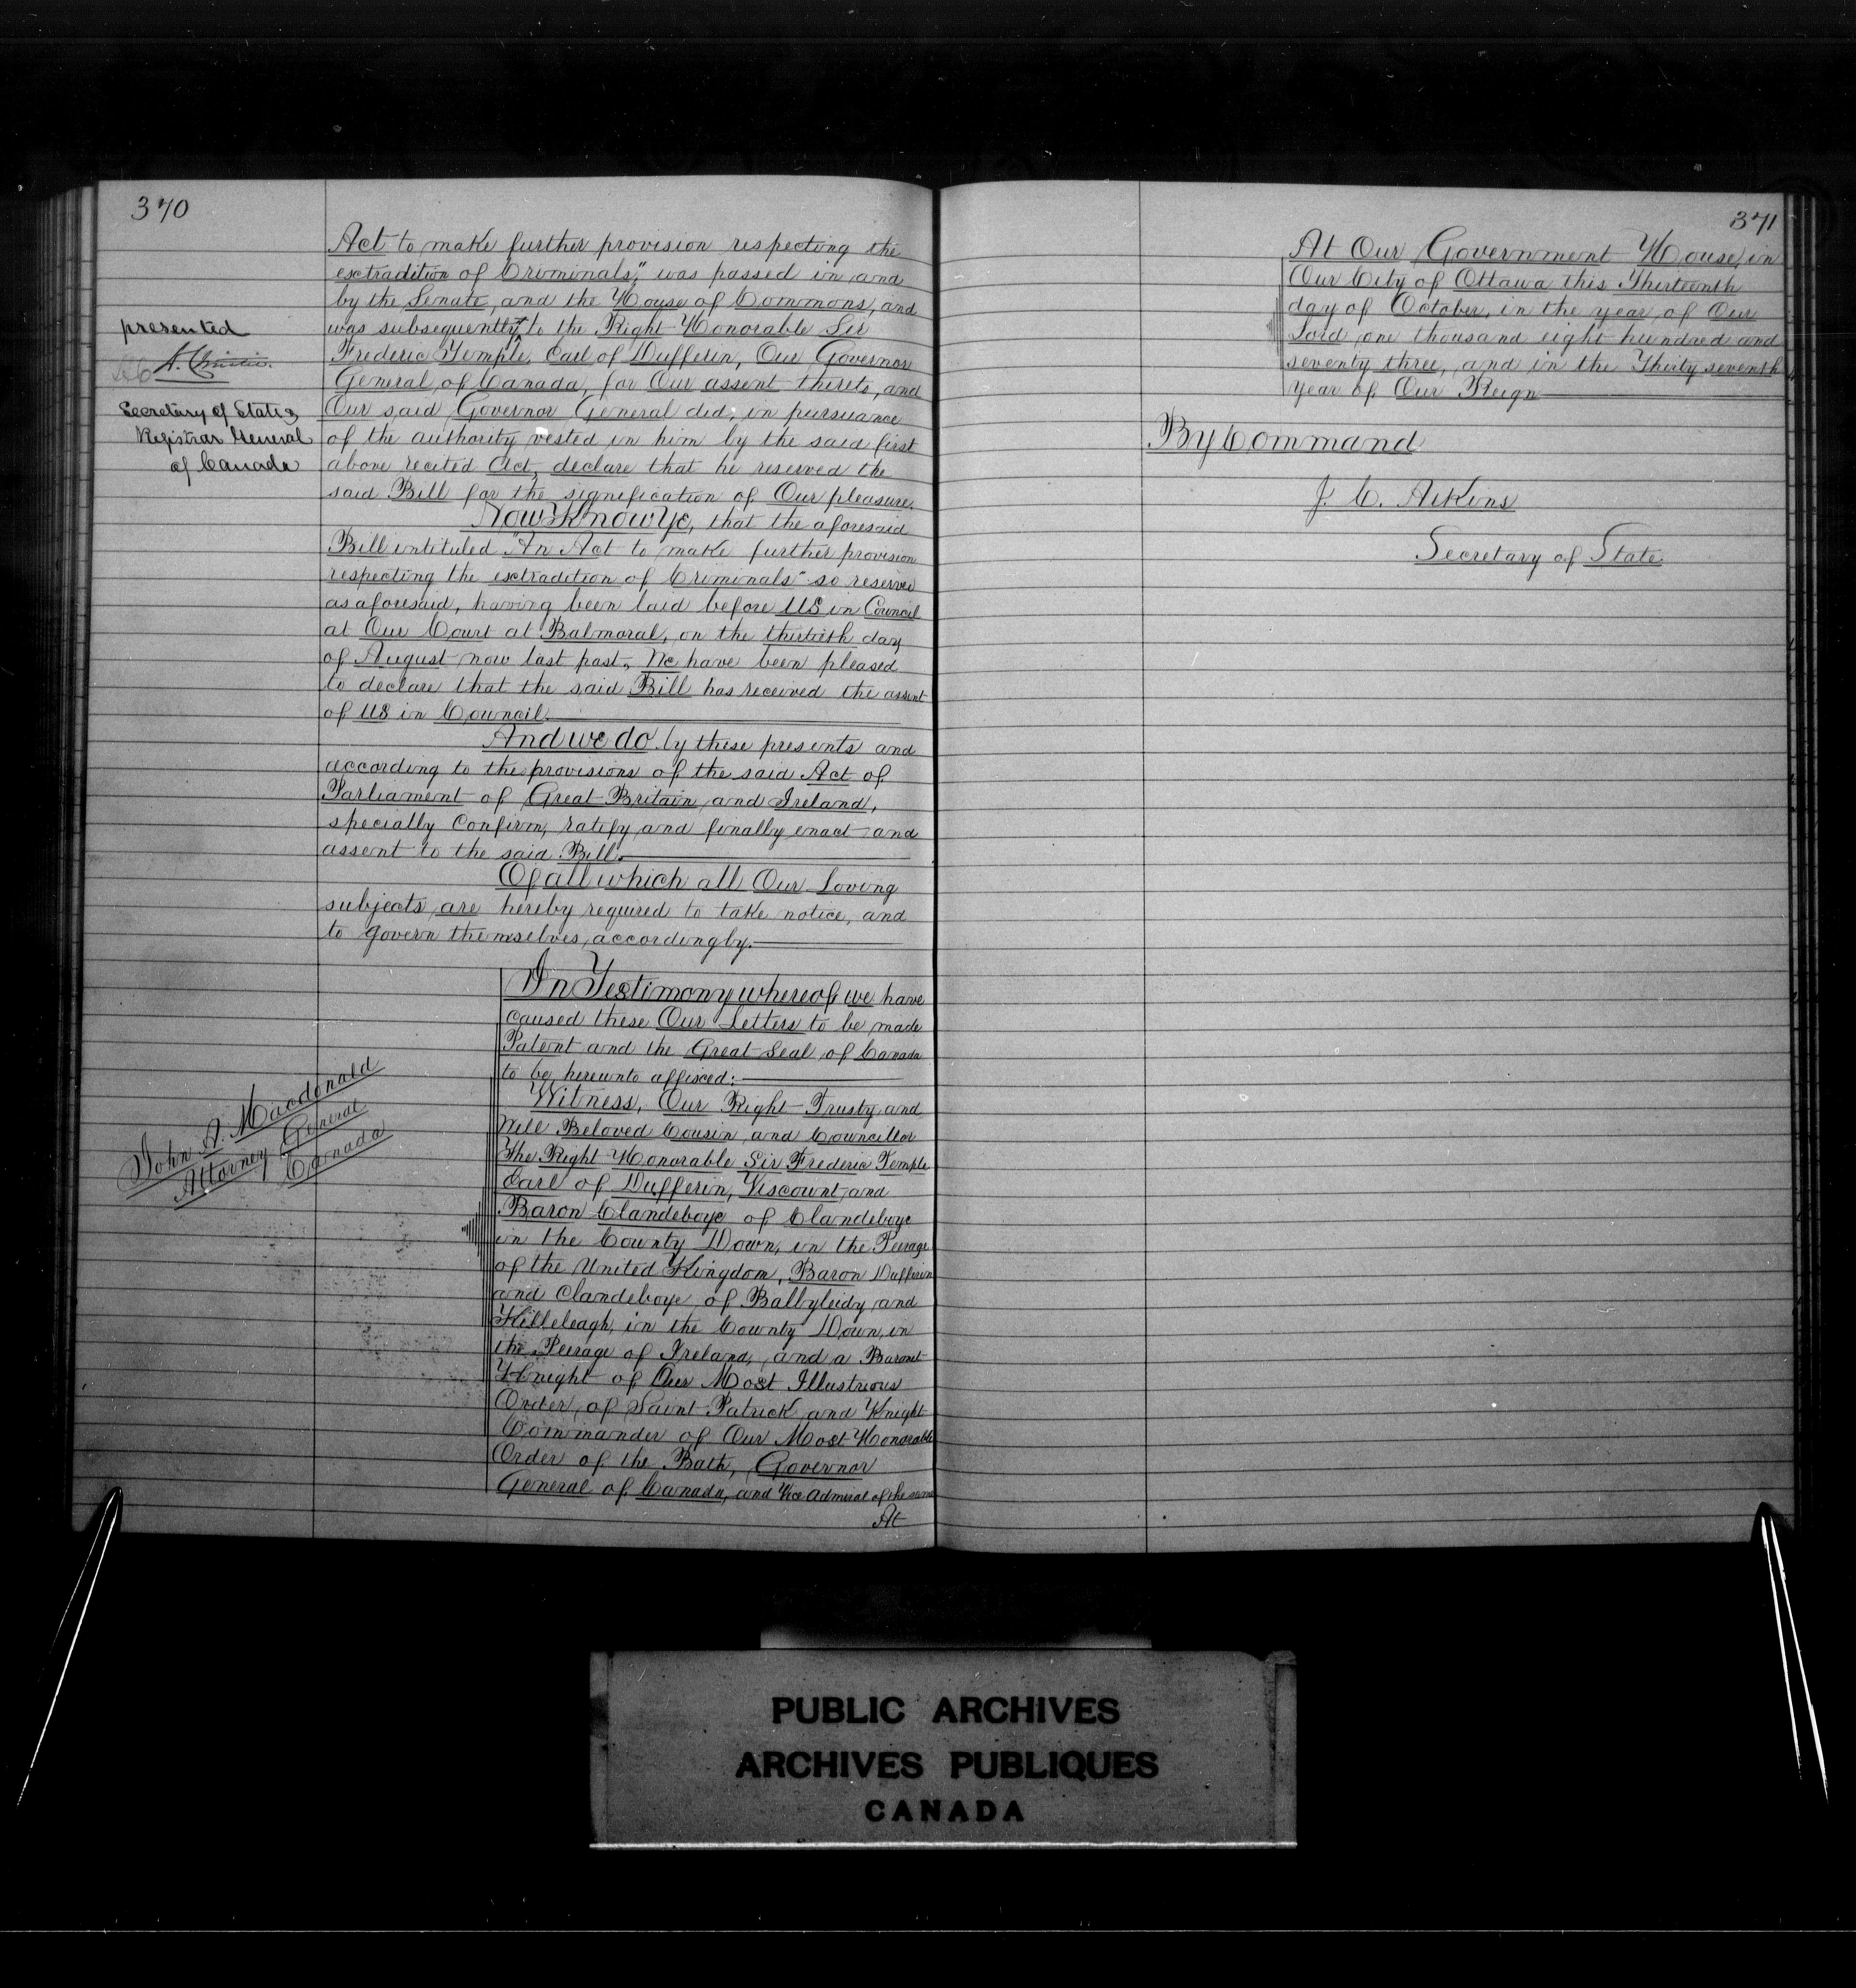 370
Act to make further provision respecting the
extradition of Criminals," was passed in and
by the Senate, and the House of Commons, and
was subsequently to the Right Honorable Sir
Frederic Temple, Earl of Dufferin, Our Governor
General of Canada, for Our assent thereto, and
Our said Governor General did, in pursuance
of the authority vested in him by the said first
above recited Act, declare that he reserved the
said Bill for the signification of Our pleasure.
Now Know Ye, that the aforesaid
Bill intituled "An Act to make further provision
respecting the extradition of Criminals" so reserved
as aforesaid, having been laid before US in Council
at Our Court at Balmoral, on the thirtieth day
of August now last past, We have been pleased
to declare that the said Bill has received the assent
of US in Council.
And we do by these presents and
according to the provisions of the said Act of
Parliament of Great Britain and Ireland,
specially confirm, ratify and finally enact and
assent to the said Bill.
Of all which all Our Loving
subjects are hereby required to take notice, and
to govern themselves accordingly.
In Testimony whereof we have
caused these Our Letters to be made
Patent and the Great Seal of Canada
to be hereunto affixed:
Witness, Our Right Trusty and
Well Beloved Cousin and Councillor
The Right Honorable Sir Frederic Temple
Earl of Dufferin, Viscount and
Baron Clandeboye of Clandeboye
in the County Down, in the Peerage
of the United Kingdom, Baron Dufferin
and Clandeboye of Ballyleidy and
Killeleagh, in the County Down, in
the Peerage of Ireland, and a Baronet
Knight of Our Most Illustrious
Order of Saint Patrick and Knight
Commander of Our Most Honorable
Order of the Bath, Governor
General of Canada, and Vice Admiral of the same
At
presented
Secretary of State &
Registrar General
of Canada
John A. Macdonald
Attorney General
Canada
371
At Our Government House, in
Our City of Ottawa this Thirteenth
day of October, in the year of Our
Lord, one thousand eight hundred and
seventy three, and in the Thirty seventh
year of Our Reign
By Command
J. C. Aikins
Secretary of State.
PUBLIC ARCHIVES
ARCHIVES PUBLIQUES
CANADA